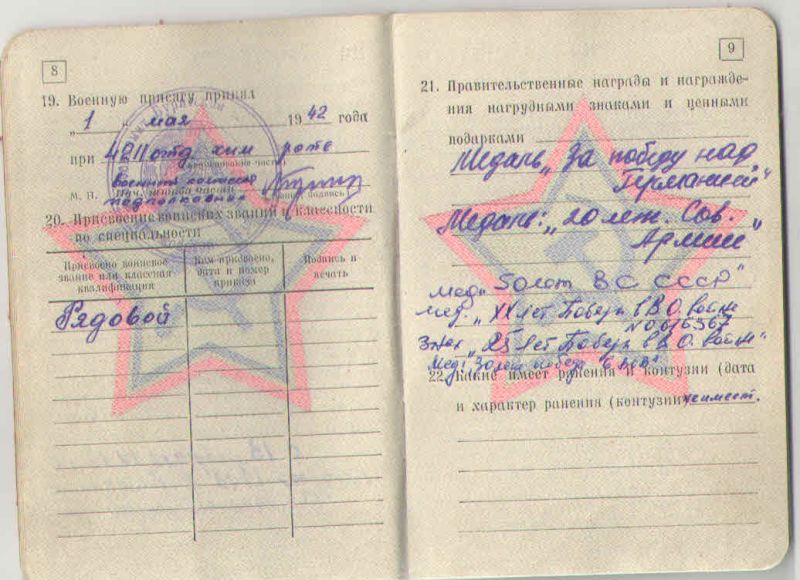 8
19. Военную присягу принял
„1" мая 1942 года
при 4211 отд. хим роте
(наименование части)
военный комиссар
М. П. Нач. штаба части (подпись)
подполковник
20. Присвоение воинских званий и классности
по специальности
Присвоено воинское звание или классная квалификация
Кем присвоено, дата и номер приказа
Подпись и печать
Рядовой
9
21. Правительственные награды и награжде-
ния нагрудными знаками и ценными
подарками
Медаль „За победу над
Германией"
Медаль: „20 лет. Сов.
Армии"
мед „50 лет ВС СССР"
мед. „ХХ лет Победы в В.О. войне
№0616367
Знак „25 лет Победы в В.О. войне"
Мед: 30 лет победы в ВОВ"
22. Какие имеет ранения и контузии (дата
и характер ранения (контузии) не имеет.